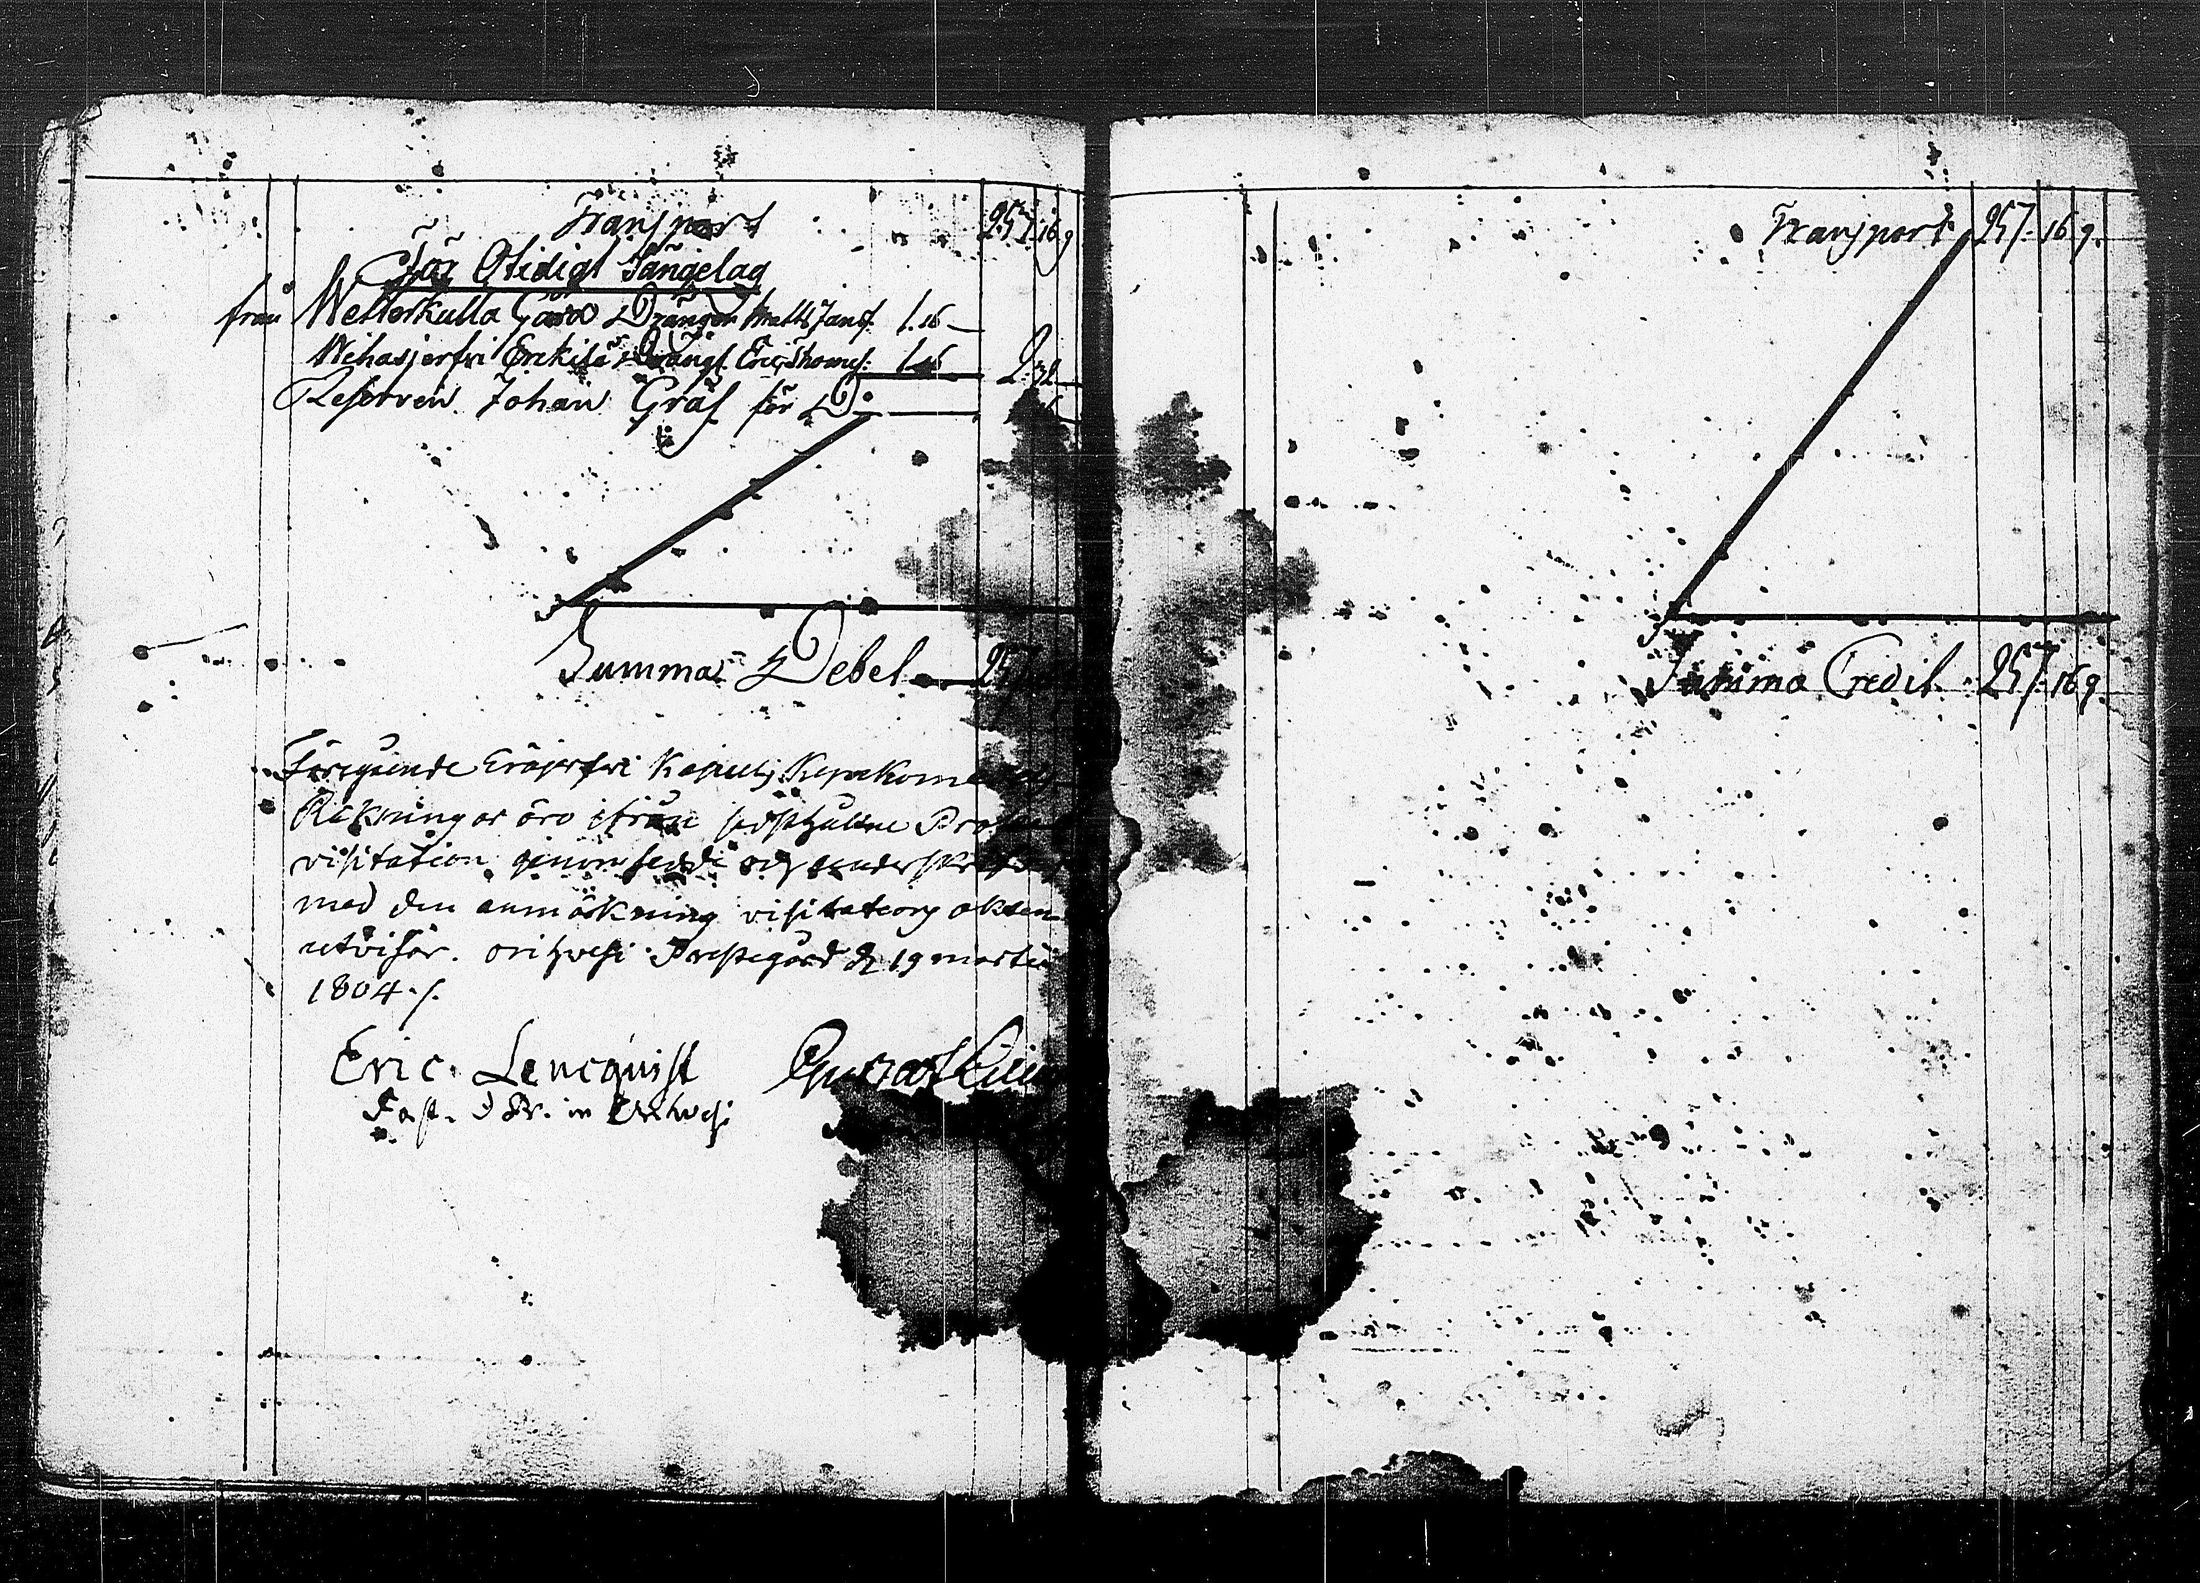 Transport 257. 16 9
För Otidigt Sängelag
från Wetterkulla Gård Drängen Matts Jansf. 1. 16 —
Wehasjerfvi Erckilä Drängl. Eric Thomef: 1. 16 2. 32 —
Reserven Johan Gräf för D:o —
Summa Debet — 257
Föregående Eräjerfvi Kapells
Räkningar äro ifrån sidsthållne
visitation genomsedde och underskrefne
med den anmärkning visitations akten
utvisar. Orihvesi Prestegård d. 19 martii
1804 ./.
Eric. Lencquist
Past. & Pr. in Orihvesi
Gustaf
Transport 257. 16 9.
Summa Credit. 257. 16 9.